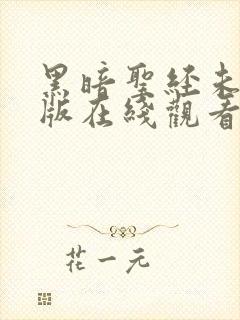 黑暗聖經未
版在綫觀看
花一元